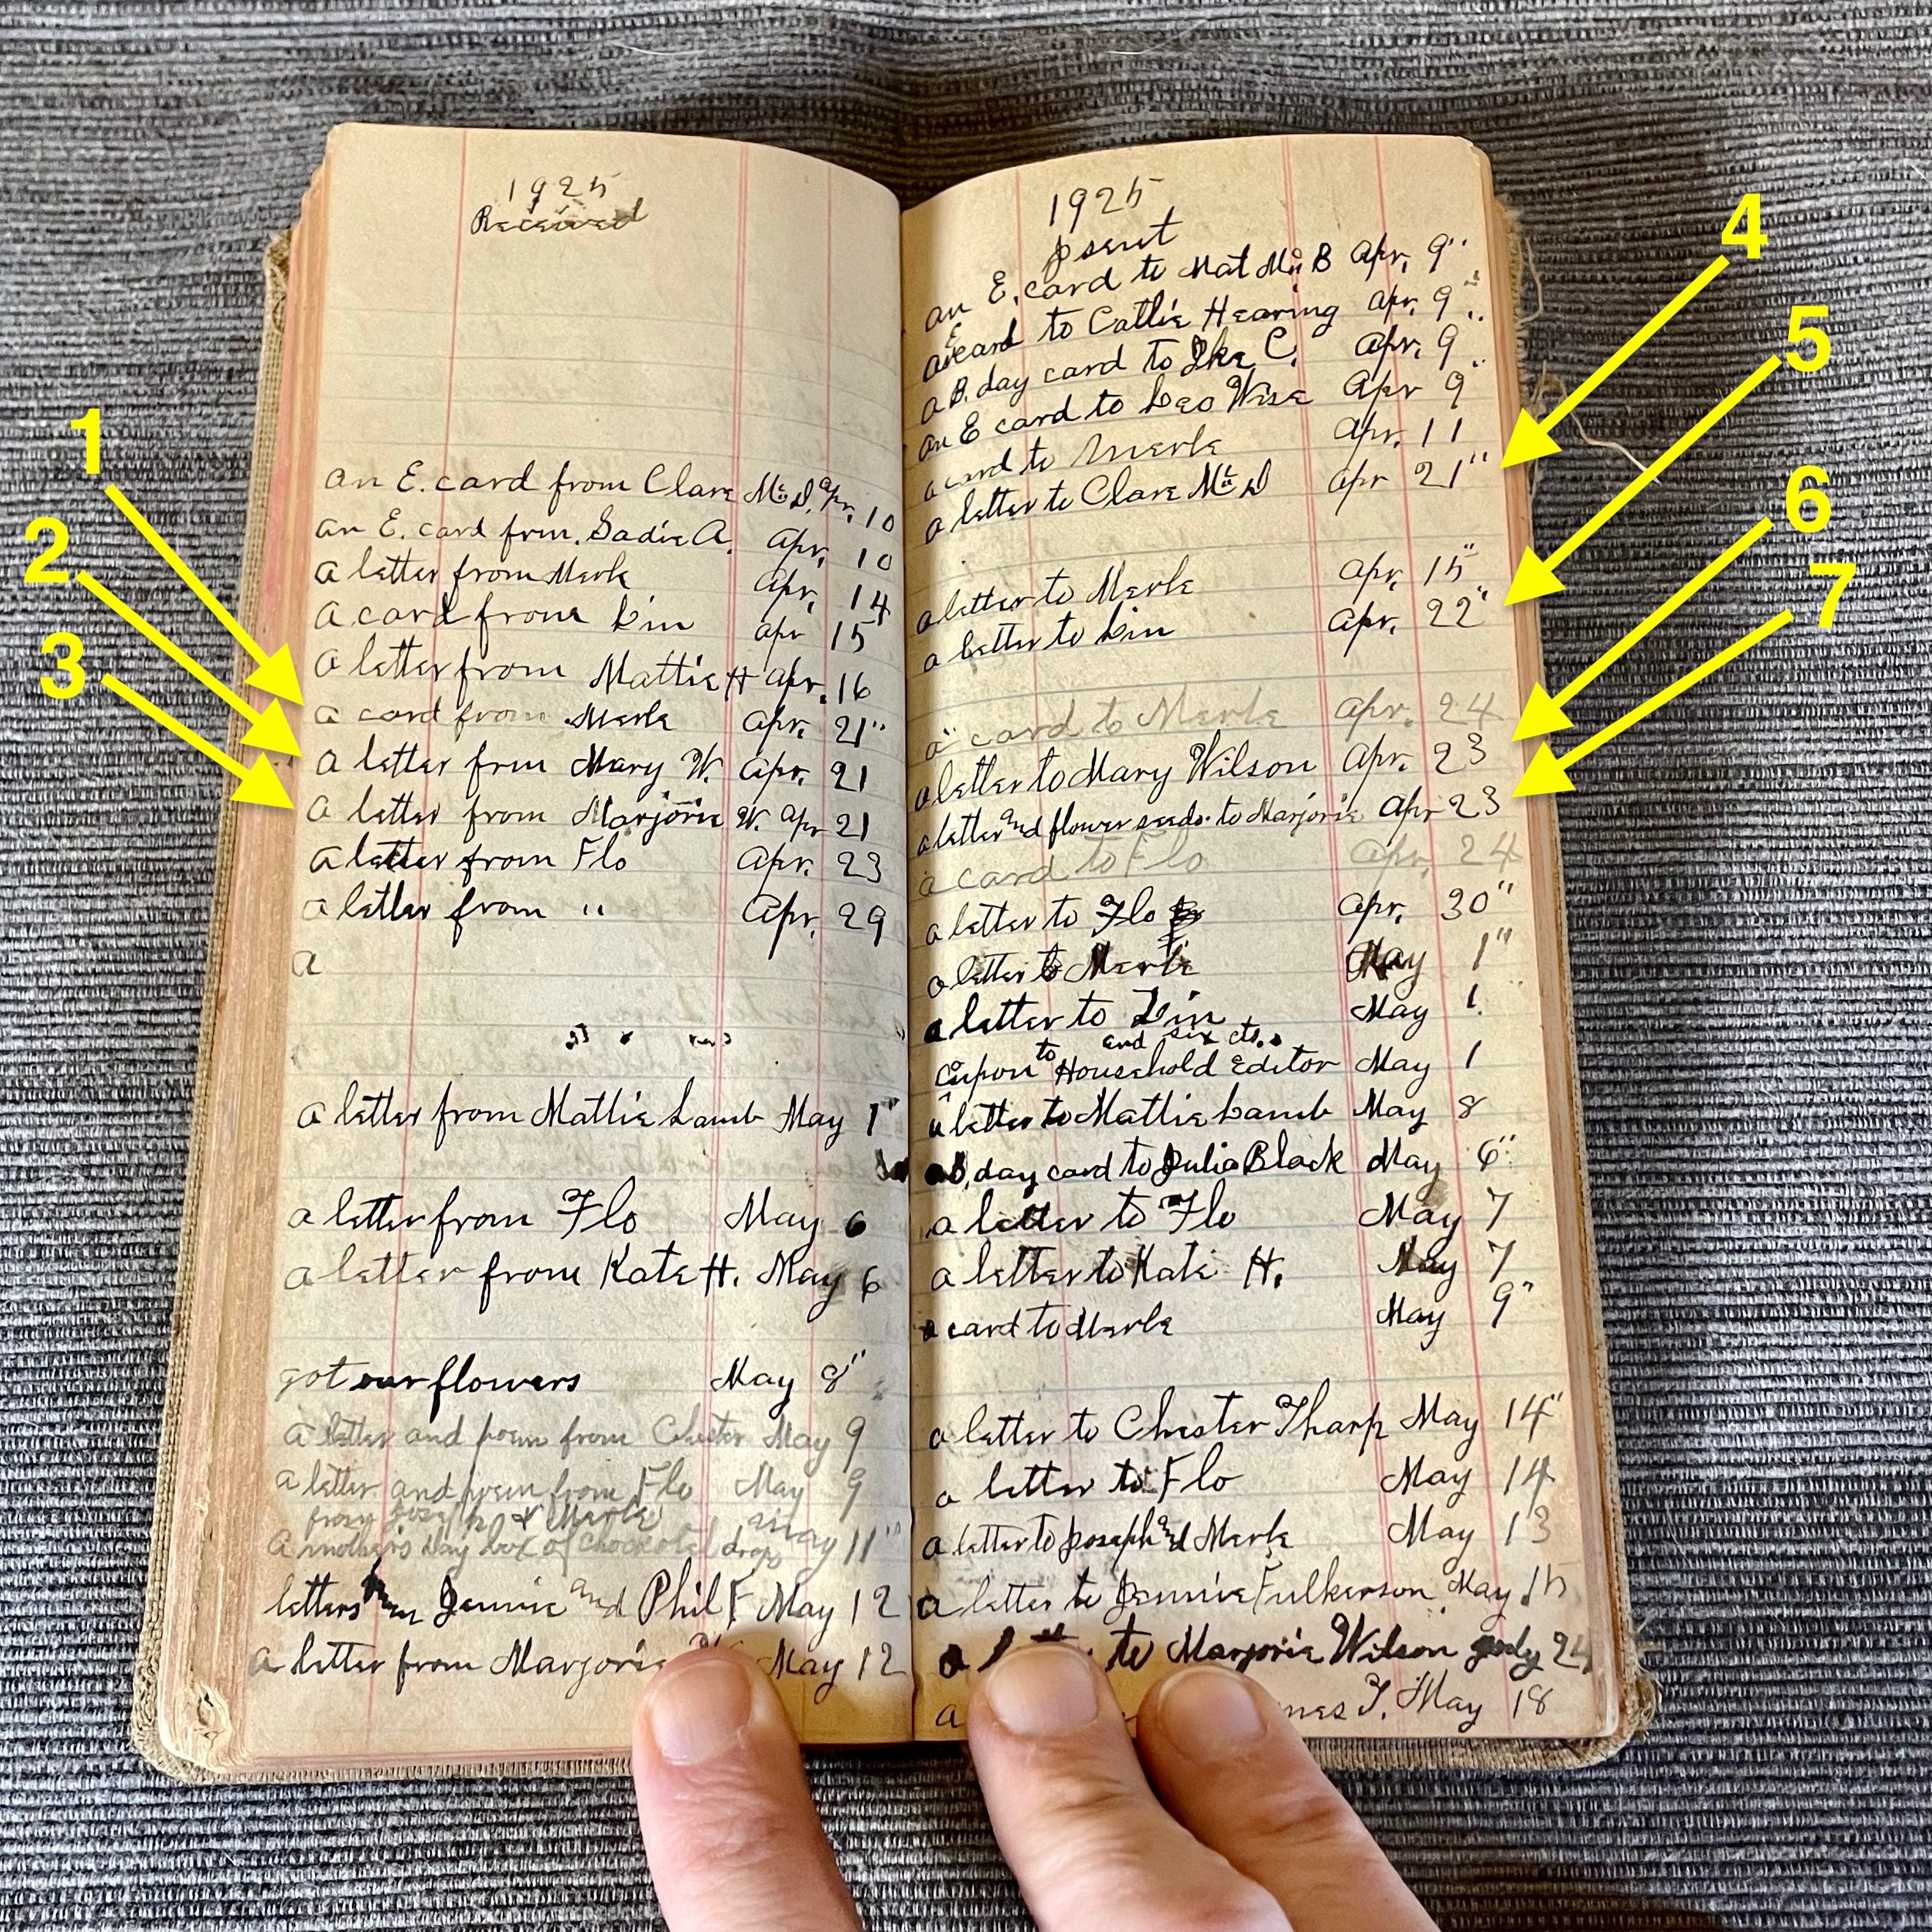 1
2
3
4
5
6
7
1925
Received
an E. card from Clare Mc D. Apr. 10
an E. card from Sadie A. Apr. 10
a letter from Merle Apr. 14
a card from Lin apr 15
a letter from Mattie H apr. 16
a card from Merle Apr. 21"
a letter frm Mary W. Apr. 21
a letter from Marjorie W. Apr 21
a letter from Flo Apr. 23
a letter from " Apr. 29
a
a letter from Mattie Lamb May 1"
a letter from Flo May 6
a letter from Kate H. May 6
got our flowers May 8"
a letter and poem from Chester May 9
a letter and poem from Flo May 9
from Joseph & Merle
A mother's Day box of drops May 11"
letters from Jennie and Phil F May 12
a letter from Marjorie May 12
1925
sent
an E. card to Mat Mc B Apr. 9"
a E card to Callie Hearing Apr. 9"
a B. day card to Ike C. Apr. 9"
an E card to Leo Wise Apr 9"
a card to Merle Apr. 11
a letter to Clare Mc D Apr 21"
a letter to Merle Apr. 15"
a letter to Lin Apr. 22"
a card to Merle Apr. 24
a letter to Mary Wilson Apr. 23
a letter and flower seeds to Marjorie Apr 23
a card to Flo Apr. 24
a letter to Flo Apr. 30"
a letter to Merle May 1"
a letter to Lin May 1
and six cts.
Cupon to Household Editor May 1
a letter to Mattie Lamb May 8
a B. day card to Julia Black May 6"
a letter to Flo May 7
a letter to Kate H. May 7
a card to Merle May 9"
a letter to Chester Tharp May 14"
a letter to Flo May 14
a letter to Joseph and Merle May 13
a letter to Jennie Fulkerson May 15
a to Marjorie Wilson July 24
a T. May 18